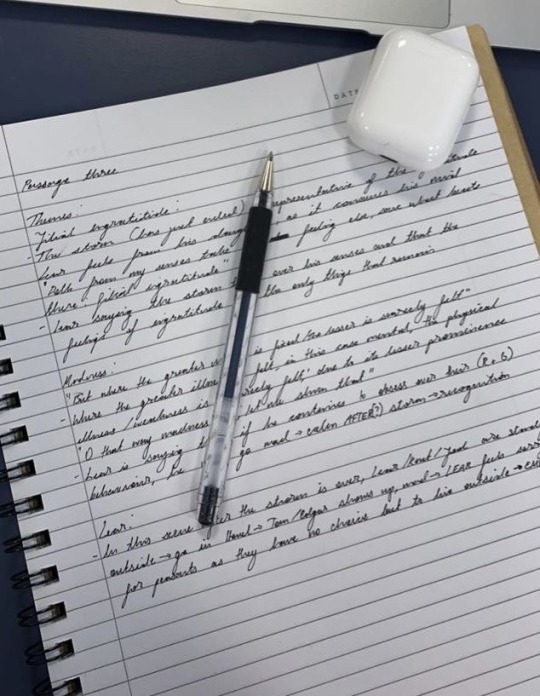 DATE
Passage three
Themes:
Filial ingratitude:
- The storm (has just ended) representative of the
Lear feels from his as it consumes his
"Doth from my senses take feeling else, save what beats
there filial ingratitude"
- Lear saying the storm over his senses and that the
feelings of ingratitude the only things that remain
Madness:
"But where the greater is fixed the lesser is scarcely felt"
- Where the greater illness felt, in this case mental, the physical
illness/weakness is "scarcely felt," due to its lesser prominence
"O that way madness let me shun that"
- Lear is saying if he continues to obsess over their (R & G)
behaviour, he go mad → calm AFTER(?) storm → recognition
Lear:
- In this scene after the storm is over, Lear/Kent/fool are
outside → go in Hovel → Tom/Edgar shows up, mad → LEAR feels
for peasants as they have no choice but to live outside →